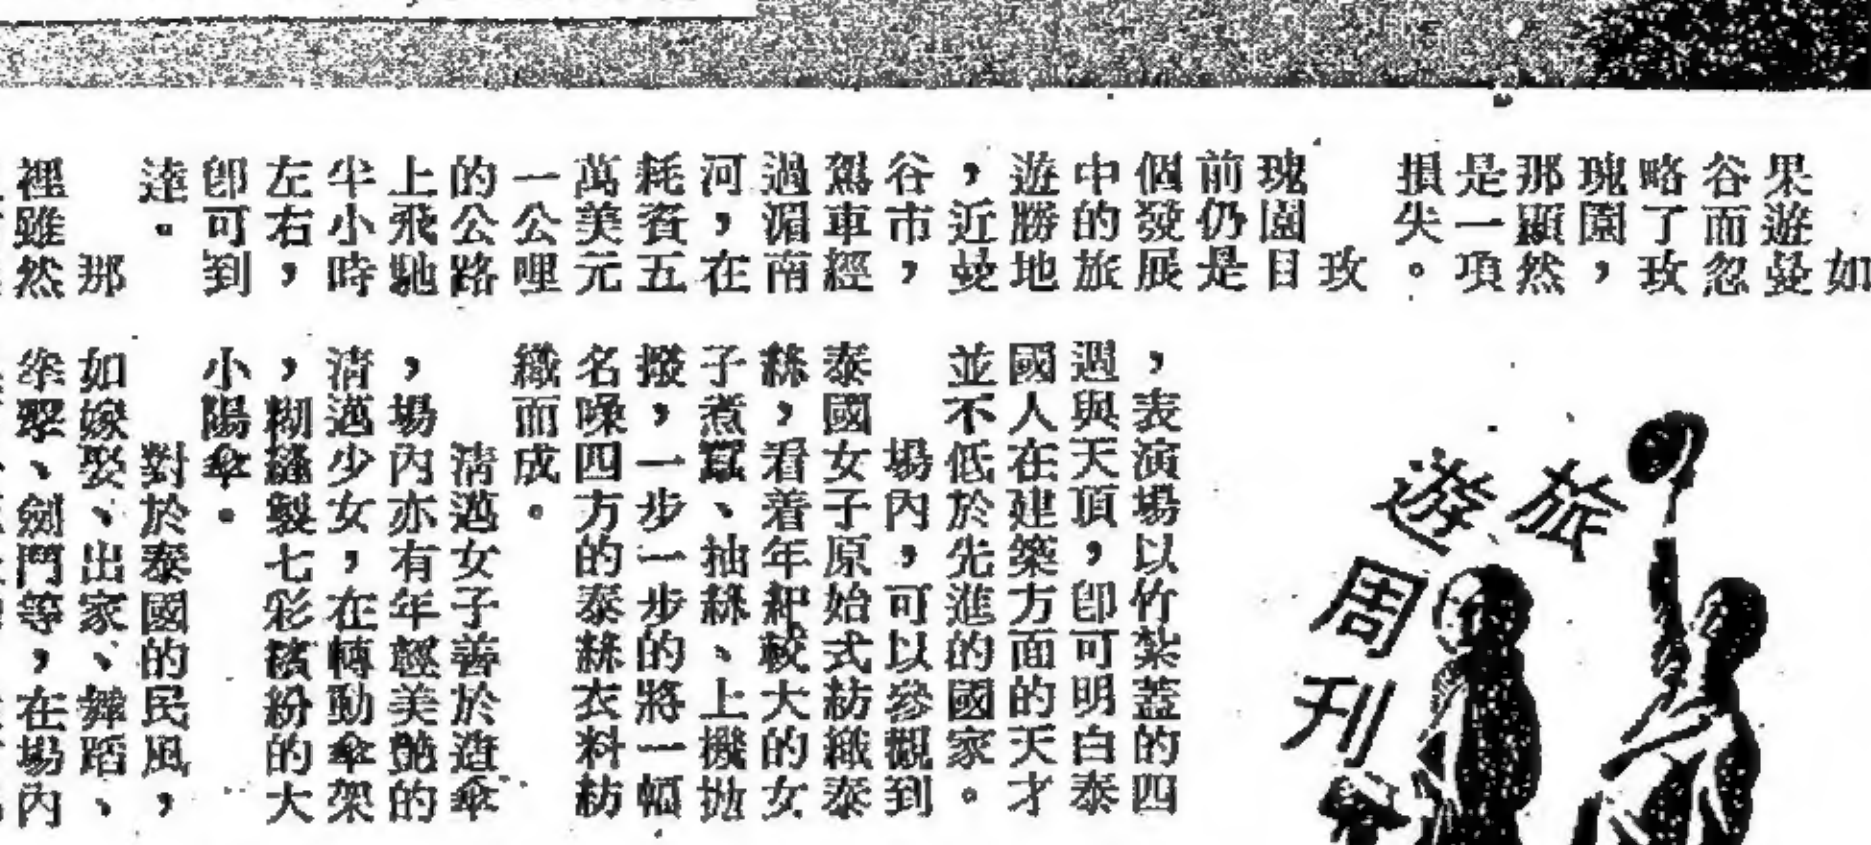 如
果遊曼
谷而忽
略了玫
瑰園，
那顯然
是一項
損失。
玫
瑰園目
前仍是
個發展
中的旅
遊勝地
，近曼
谷市，
駕車經
過湄南
河，在
耗資五
萬美元
一公哩
的公路
上飛馳
半小時
左右，
即可到
達。
那
裡雖然
旅遊周刊
，表演場以竹紮蓋的四
週與天頂，即可明白泰
國人在建築方面的天才
並不低於先進的國家。
場內，可以參觀到
泰國女子原始式紡織泰
絲，看着年紀較大的女
子煮繭、抽絲、上機拋
撥，一步一步的將一幅
名噪四方的泰絲衣料紡
織而成。
清邁女子善於造傘
，場內亦有年輕美艶的
清邁少女，在轉動傘架
，糊縫製七彩繽紛的大
小陽傘。
對於泰國的民風，
如嫁娶、出家、舞蹈、
拳擊、劍鬥等，在場內